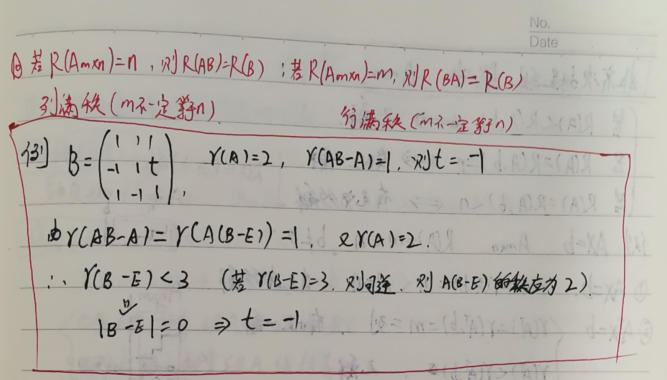 No.
Date
④ 若R(Am×n)=n，则R(AB)=R(B)；若R(Am×n)=m，则R(BA)=R(B)
列满秩(m不一定等于n)    行满秩(m不一定等于n)
例 B=(1 1 1; -1 1 t; 1 -1 1)，γ(A)=2，γ(AB-A)=1，则t=-1
由γ(AB-A)=γ(A(B-E))=1，又γ(A)=2.
∴ γ(B-E)<3 (若γ(B-E)=3，则可逆，则A(B-E)的秩应为2).
⇓
|B-E|=0 ⇒ t=-1